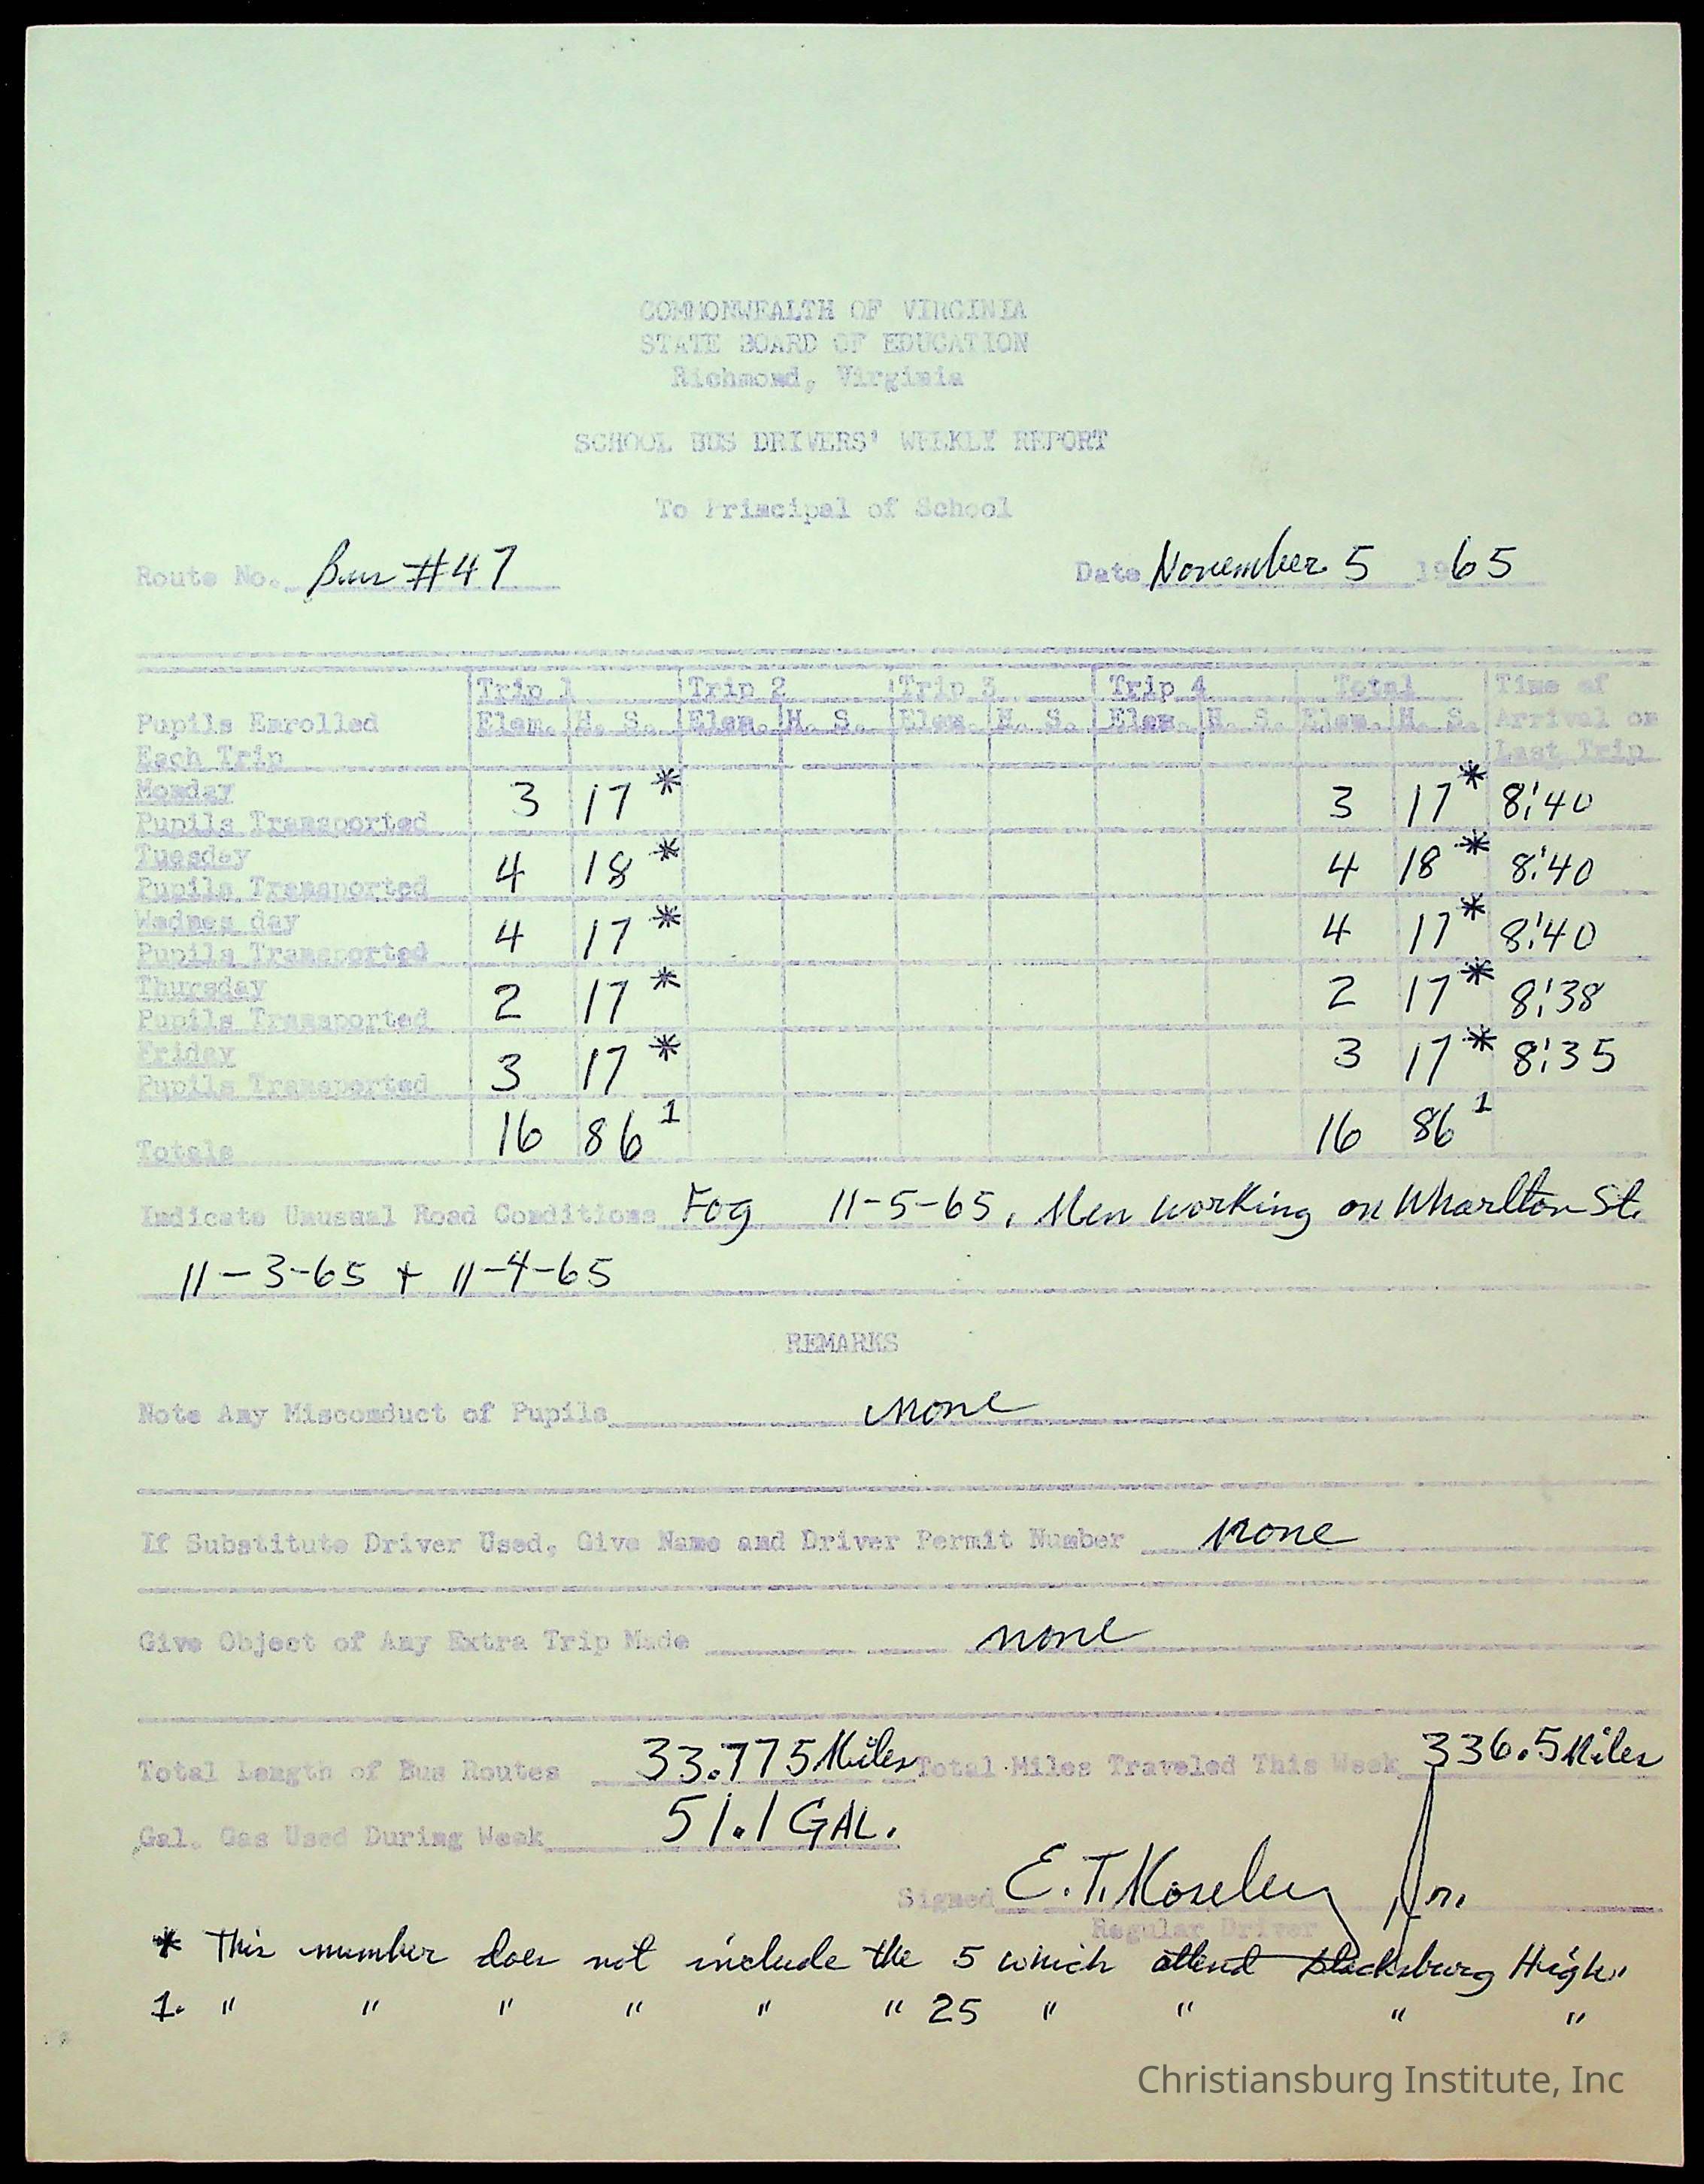 COMMONWEALTH OF VIRGINIA
STATE BOARD OF EDUCATION
Richmond, Virginia
SCHOOL BUS DRIVERS' WEEKLY REPORT
To Principal of School
Route No. Bus #47 Date November 5 1965
Trip 1 Trip 2 Trip 3 Trip 4 Total Time of
Pupils Enrolled Elem. H. S. Elem. H. S. Elem. H. S. Elem. H. S. Elem. H. S. Arrival on
Each Trip Last Trip
Monday
Pupils Transported 3 17* 3 17* 8:40
Tuesday
Pupils Transported 4 18* 4 18* 8:40
Wednesday
Pupils Transported 4 17* 4 17* 8:40
Thursday
Pupils Transported 2 17* 2 17* 8:38
Friday
Pupils Transported 3 17* 3 17* 8:35
Totals 16 86 1 16 86 1
Indicate Unusual Road Conditions Fog 11-5-65, Men working on Wharlton St.
11-3-65 + 11-4-65
REMARKS
Note Any Misconduct of Pupils none
If Substitute Driver Used, Give Name and Driver Permit Number none
Give Object of Any Extra Trip Made none
Total Length of Bus Routes 33.775 Miles Total Miles Traveled This Week 336.5 Miles
Gal. Gas Used During Week 51.1 GAL.
Signed E. T. Moseley Jr.
Regular Driver
* This number does not include the 5 which attend Blacksburg High.
1. " " " " " " 25 " " " "
Christiansburg Institute, Inc